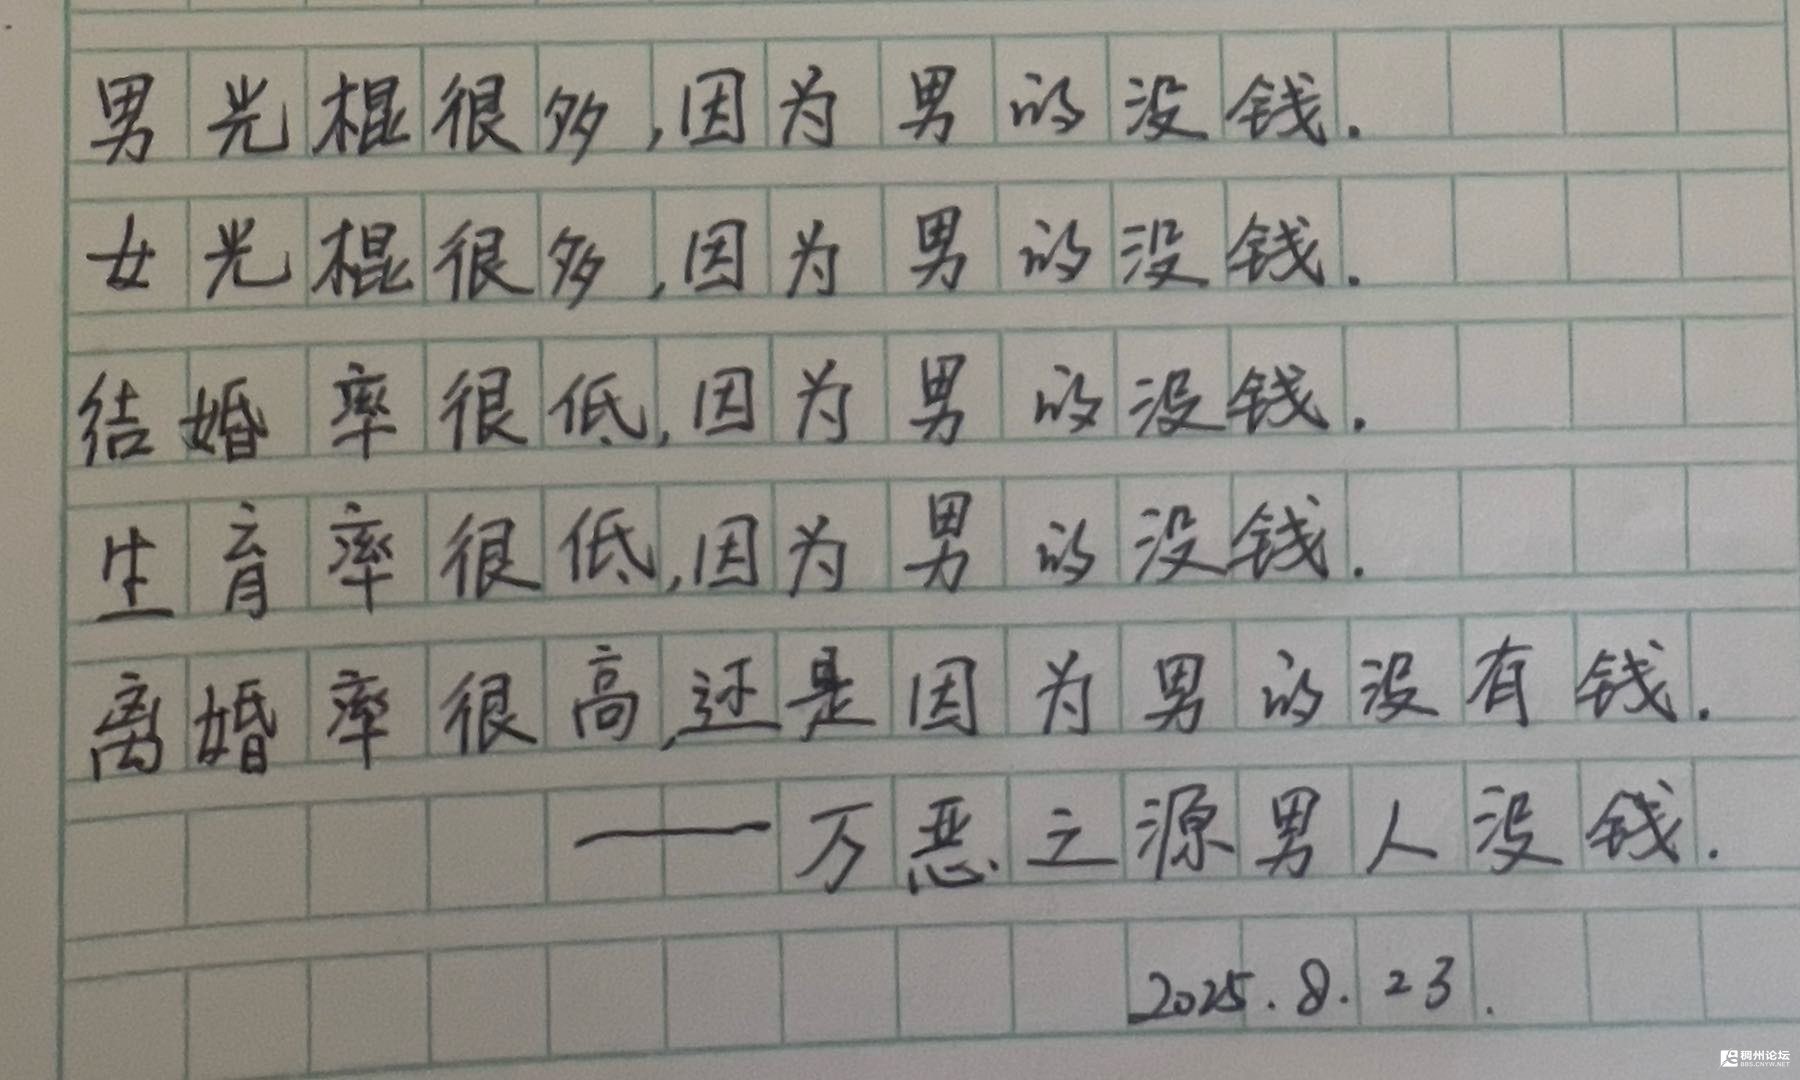 男光棍很多,因为男的没钱.
女光棍很多,因为男的没钱.
结婚率很低,因为男的没钱.
生育率很低,因为男的没钱.
离婚率很高,还是因为男的没有钱.
——万恶之源男人没钱.
2025.8.23.
稠州论坛
BBS.CNYW.NET